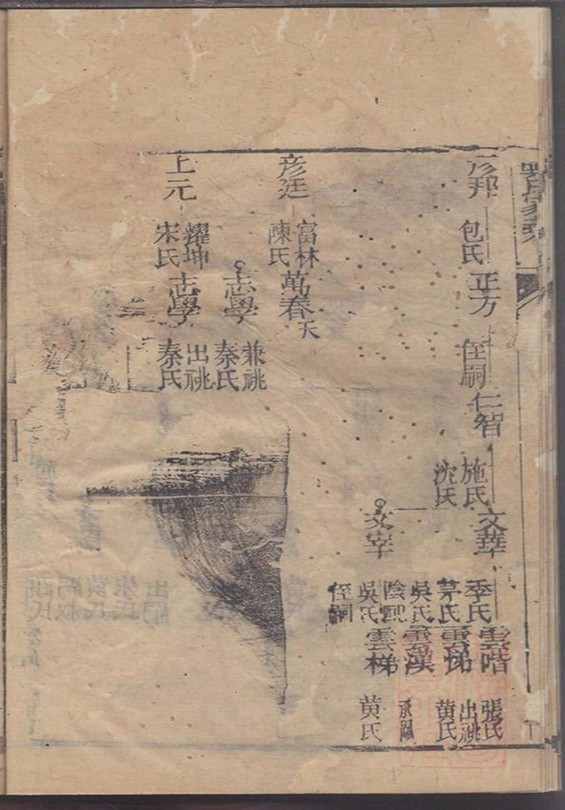 彥邦
包氏
正方
侄嗣
仁智
施氏
沈氏
文華
季氏
茅氏
雲階
張氏
出祧
黃氏
吳氏
雲漢
承嗣
文宰
陰熙
吳氏
侄嗣
雲梯
黃氏
彥廷
富林
陳氏
萬春
夭
志學
兼祧
秦氏
上元
耀坤
宋氏
志學
出祧
秦氏